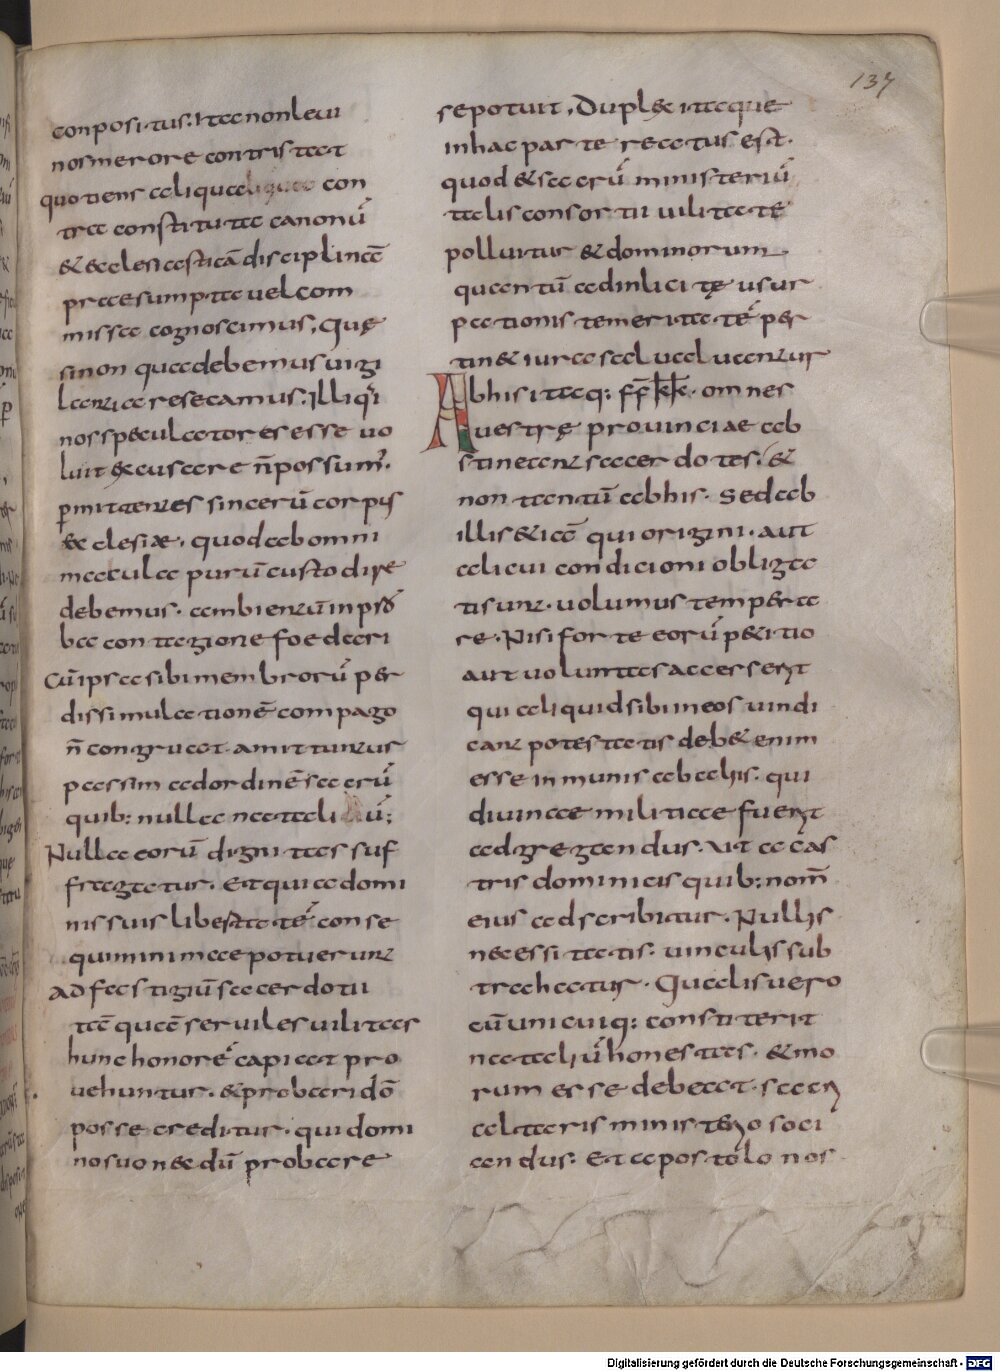 137
conpositus. Ita nonlevi
nos merore contristat
quotiens aliqua con
tra constituta canonū
& ecclesiasticā disciplinā
praesumpta vel com
missa cognoscimus, Quę
si non qua debemus uigi
lantia resecamus. Illi qui
nos speculatores esse uo
luit excusare n̄ possum̄.
permittentes sincerū corpus
ecclesiæ. quod ab omni
macula purū custodire
debemus. ambientiū in pro
ba contagione foedari
Cū ipsa sibi membrorū per
dissimulationē compago
n̄ congruat. amittuntur
passim ad ordinē sacrū
quib: nulla nataliū;
Nulla eorū dignitas suf
fragatur. Et qui a domi
nis suis libertatē conse
qui minimae potuerunt
ad fastigiū sacerdotii
tā quā seruiles uilitas
hunc honorē capiat pro
uehuntur. & probari dō
posse creditur. qui domi
no suo necdū probare
se potuit, Duplex itaque
in hac parte reatus est.
quod & sacrū ministeriū
talis consortii uilitate
polluitur & dominorum
quantū ad inlicitę usur
pationis temeritatē per
tin& iura salualuantur
Ab his itaq: omnes
uestrę prouinciae ab
stineant sacerdotes. &
non tantū ab his. Sed ab
illis & iā qui origini. aut
alicui condicioni obliga
ti sunt. uolumus tempera
re. Nisi forte eorū petitio
aut uoluntas accesserit
qui aliquid sibi in eos uindi
cant potestatis deb& enim
esse inmunis ab aliis. qui
diuinae militiae fuerit
adgregandus. Ut a cas
tris dominicis quib: nom̄
eius adscribitur. Nullis
necessitatis. uinculis sub
trahatur. Qualis uero
cū unicuiq: constiterit
nataliū honestas. & mo
rum esse debeat. sacri
altaris ministerio soci
andus. Et apostolo nos
Digitalisierung gefördert durch die Deutsche Forschungsgemeinschaft - DFG